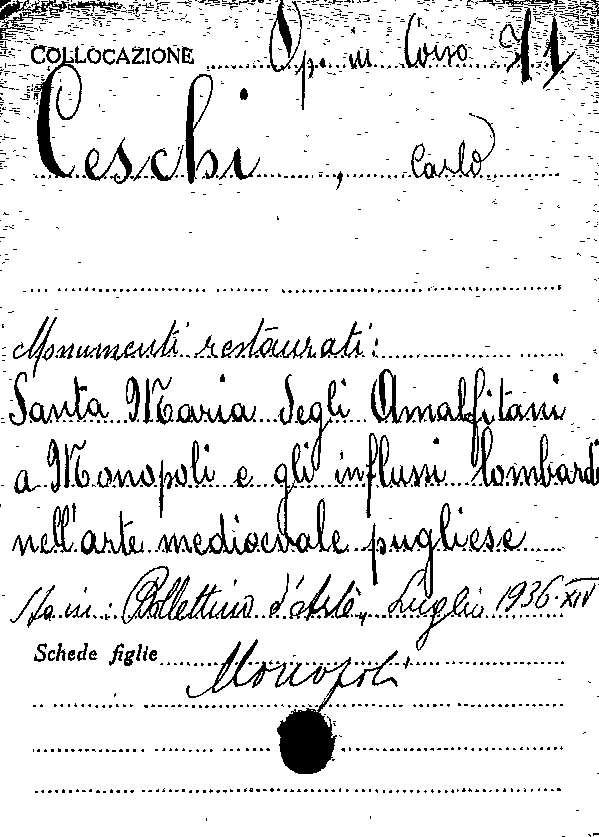 COLLOCAZIONE Op. in Corso 71
Ceschi, Carlo
Monumenti restaurati:
Santa Maria degli Amalfitani
a Monopoli e gli influssi lombardi
nell'arte medioevale pugliese
Sta in: Bollettino d'Arte, Luglio 1936-XIV
Schede figlie Monopoli